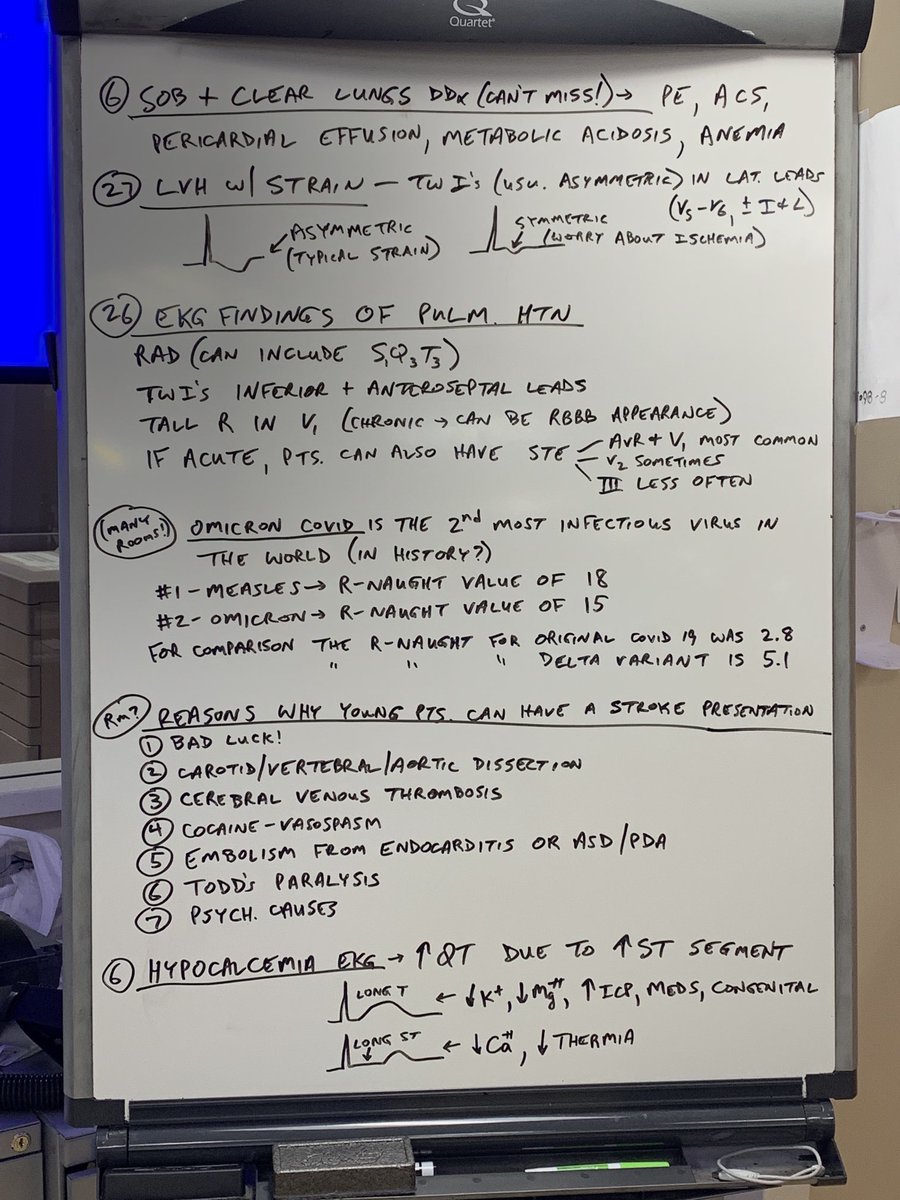 Quartet
⑥ SOB + CLEAR LUNGS DDx (CAN'T MISS!) → PE, ACS,
PERICARDIAL EFFUSION, METABOLIC ACIDOSIS, ANEMIA
㉗ LVH W/ STRAIN – TWI's (USU. ASYMMETRIC) IN LAT. LEADS
(V5-V6, ± I & L)
← ASYMMETRIC
(TYPICAL STRAIN)
SYMMETRIC
(WORRY ABOUT ISCHEMIA)
㉖ EKG FINDINGS OF PULM. HTN
RAD (CAN INCLUDE S1Q3T3)
TWI'S INFERIOR + ANTEROSEPTAL LEADS
TALL R IN V1 (CHRONIC → CAN BE RBBB APPEARANCE)
IF ACUTE, PTS. CAN ALSO HAVE STE
AVR & V1 MOST COMMON
V2 SOMETIMES
III LESS OFTEN
(MANY ROOMS!) OMICRON COVID IS THE 2nd MOST INFECTIOUS VIRUS IN
THE WORLD (IN HISTORY?)
#1 - MEASLES → R-NAUGHT VALUE OF 18
#2 - OMICRON → R-NAUGHT VALUE OF 15
FOR COMPARISON THE R-NAUGHT FOR ORIGINAL COVID 19 WAS 2.8
" " " DELTA VARIANT IS 5.1
Rm? REASONS WHY YOUNG PTS. CAN HAVE A STROKE PRESENTATION
① BAD LUCK!
② CAROTID/VERTEBRAL/AORTIC DISSECTION
③ CEREBRAL VENOUS THROMBOSIS
④ COCAINE - VASOSPASM
⑤ EMBOLISM FROM ENDOCARDITIS OR ASD/PDA
⑥ TODD'S PARALYSIS
⑦ PSYCH. CAUSES
⑥ HYPOCALCEMIA EKG → ↑QT DUE TO ↑ST SEGMENT
LONG T ← ↓K+, ↓Mg++, ↑ICP, MEDS, CONGENITAL
LONG ST ← ↓Ca++, ↓THERMIA